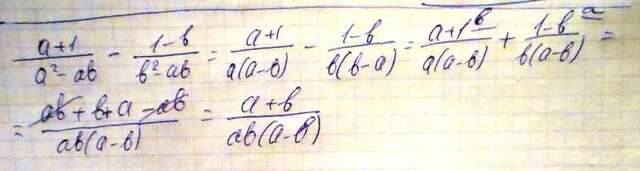 (a+1)/(a²-ab) - (1-b)/(b²-ab) = (a+1)/(a(a-b)) - (1-b)/(b(b-a)) = (a+1)^b/(a(a-b)) + (1-b)^a/(b(a-b)) =
= (ab+b+a-ab)/(ab(a-b)) = (a+b)/(ab(a-b))